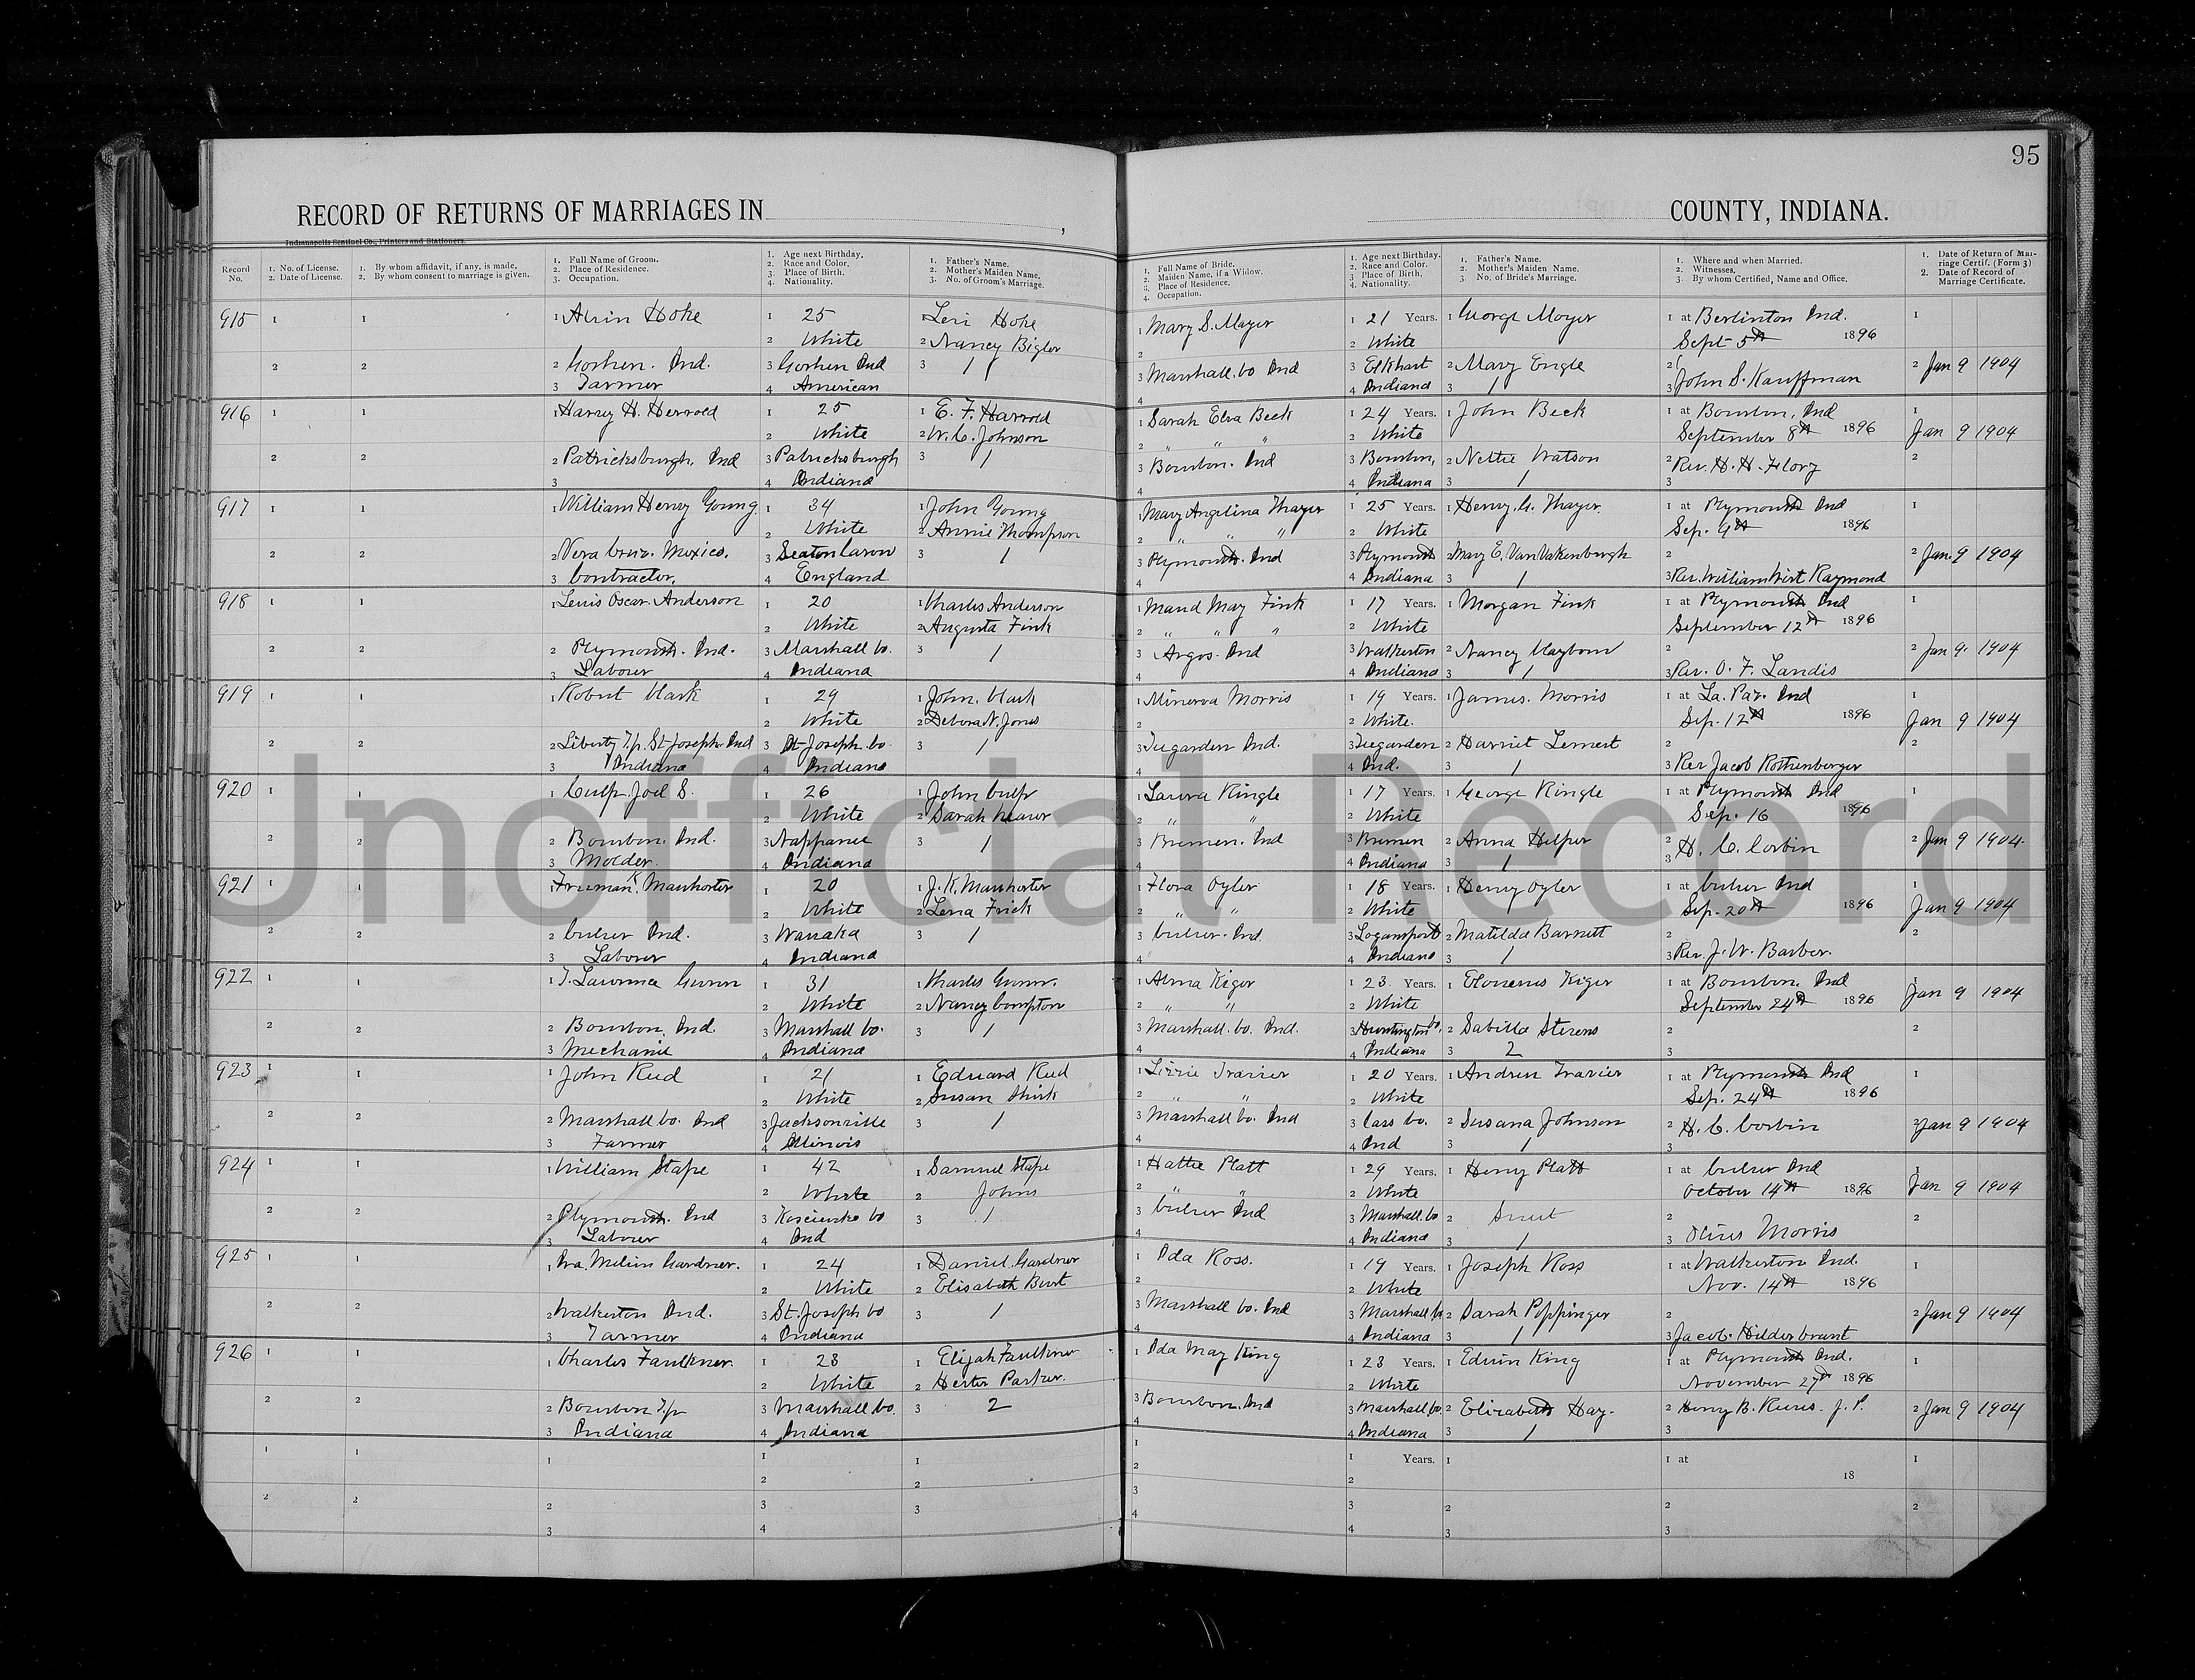 95
RECORD OF RETURNS OF MARRIAGES IN , COUNTY, INDIANA.
Indianapolis Sentinel Co., Printers and Stationers.
Record No.
1. No. of License.
2. Date of License.
1. By whom affidavit, if any, is made,
2. By whom consent to marriage is given.
1. Full Name of Groom.
2. Place of Residence.
3. Occupation.
1. Age next Birthday,
2. Race and Color,
3. Place of Birth.
4. Nationality.
1. Father's Name.
2. Mother's Maiden Name,
3. No. of Groom's Marriage.
1. Full Name of Bride.
2. Maiden Name, if a Widow.
3. Place of Residence.
4. Occupation.
1. Age next Birthday.
2. Race and Color.
3. Place of Birth.
4. Nationality.
1. Father's Name.
2. Mother's Maiden Name.
3. No. of Bride's Marriage.
1. Where and when Married.
2. Witnesses.
3. By whom Certified, Name and Office.
1. Date of Return of Marriage Certif. (Form 3)
2. Date of Record of Marriage Certificate.
915 1 1 1 Alvin Hoke 1 25 1 Levi Hoke 1 Mary S. Moyer 1 21 Years. 1 George Moyer 1 at Berlinton Ind. 1
2 White 2 Nancy Bigler 2 2 White Sept 5th 1896
2 2 2 Goshen. Ind. 3 Goshen Ind 3 1 3 Marshall. Co Ind 3 Elkhart 2 Mary Engle 2 2 Jan 9 1904
3 Farmer 4 American 4 4 Indiana 3 1 3 John S. Kauffman
916 1 1 1 Harry H. Herrold 1 25 1 E. F. Harrold 1 Sarah Elva Beck 1 24 Years. 1 John Beck 1 at Bourbon, Ind 1
2 White 2 W. C. Johnson 2 " " " 2 White September 8th 1896 Jan 9 1904
2 2 2 Patricksburgh, Ind 3 Patricksburgh 3 1 3 Bourbon. Ind 3 Bourbon, 2 Nettie Watson 2 Rev. H. H. Flory 2
3 4 Indiana 4 4 Indiana 3 1 3
917 1 1 1 William Henry Young 1 34 1 John Young 1 Mary Angelina Thayer 1 25 Years. 1 Henry G. Thayer. 1 at Plymouth Ind 1
2 White 2 Annie Thompson 2 " " " 2 White Sep. 9th 1896
2 2 2 Vera Cruz. Mexico. 3 Seaton 3 1 3 Plymouth. Ind 3 Plymouth 2 Mary E. VanValkenburgh 2 2 Jan. 9 1904
3 Contractor, 4 England 4 4 Indiana 3 1 3 Rev. William Wirt Raymond
918 1 1 1 Lewis Oscar Anderson 1 20 1 Charles Anderson 1 Maud May Fink 1 17 Years. 1 Morgan Fink 1 at Plymouth Ind 1
2 White 2 Augusta Fink 2 " " " 2 White September 12th 1896
2 2 2 Plymouth. Ind. 3 Marshall Co. 3 1 3 Argos. Ind 3 Walkerton 2 Nancy Clayborn 2 2 Jan 9. 1904
3 Laborer 4 Indiana 4 4 Indiana 3 1 3 Rev. O. F. Landis
919 1 1 1 Robert Clark 1 29 1 John. Clark 1 Minerva Morris 1 19 Years. 1 James. Morris 1 at La. Paz. Ind 1
2 White 2 Debora N. Jones 2 2 White. Sep. 12th 1896 Jan 9 1904
2 2 2 Liberty T.p. St Joseph. Ind 3 St Joseph. Co. 3 1 3 Teegarden Ind. 3 Teegarden 2 Harriet Lemert 2 2
3 Indiana 4 Indiana 4 4 Ind. 3 1 3 Rev Jacob Rothenberger
920 1 1 1 Culp. Joel S. 1 26 1 John Culp 1 Laura Ringle 1 17 Years. 1 George Ringle 1 at Plymouth Ind 1
2 White 2 Sarah 2 " " 2 White Sep. 16 1896
2 2 2 Bourbon. Ind. 3 Nappanee 3 1 3 Bremen. Ind 3 Bremen 2 Anna Helper 2 H. C. Corbin 2 Jan 9 1904.
3 Molder. 4 Indiana 4 4 Indiana 3 1 3
921 1 1 1 Freeman K. Mauhorter 1 20 1 J. K. Mauhorter 1 Flora Oyler 1 18 Years. 1 Henry Oyler 1 at Culver Ind 1
2 White 2 Lena Frick 2 " " 2 White Sep. 20th 1896 Jan 9 1904
2 2 2 Culver Ind. 3 Wanaka 3 1 3 Culver. Ind. 3 Logansport 2 Matilda Barnett 2 2
3 Laborer 4 Indiana 4 4 Indiana 3 1 3 Rev. J. W. Barber.
922 1 1 1 T. Lawrence Gunn 1 31 1 Charles Gunn. 1 Alma Kiger 1 23 Years. 1 Kiger 1 at Bourbon. Ind 1
2 White 2 Nancy Compton 2 " " 2 White September 24th 1896 Jan 9 1904
2 2 2 Bourbon Ind. 3 Marshall Co. 3 1 3 Marshall. Co. Ind. 3 Huntington Co. 2 Sabilla Stevens 2 2
3 Mechanic 4 Indiana 4 4 Indiana 3 2 3
923 1 1 1 John Reed 1 21 1 Edward Reed 1 Lizzie Frazier 1 20 Years. 1 Andrew Frazier 1 at Plymouth Ind 1
2 White 2 Susan Shirk 2 " " 2 White Sep. 24th 1896
2 2 2 Marshall Co. Ind 3 Jacksonville 3 1 3 Marshall Co. Ind 3 Cass Co. 2 Susana Johnson 2 H. C. Corbin 2 Jan 9 1904
3 Farmer 4 Illinois 4 4 Ind 3 1 3
924 1 1 1 William Stape 1 42 1 Samuel Stape 1 Hattie Platt 1 29 Years. 1 Henry Platt 1 at Culver Ind 1
2 White 2 Johns 2 " " 2 White October 14th 1896 Jan 9 1904
2 2 2 Plymouth. Ind 3 Kosciusko Co 3 1 3 Culver Ind 3 Marshall. Co 2 2 2
3 Laborer 4 Ind 4 4 Indiana 3 1 3 Oliver Morris
925 1 1 1 Ira. Melvin Gardner. 1 24 1 Daniel. Gardner 1 Ida Ross. 1 19 Years. 1 Joseph Ross 1 at Walkerton Ind. 1
2 White 2 Elisabeth Burt 2 2 White Nov. 14th 1896
2 2 2 Walkerton Ind. 3 St. Joseph Co 3 1 3 Marshall Co. Ind 3 Marshall Co 2 Sarah Poppinger 2 2 Jan 9 1904
3 Farmer 4 Indiana 4 4 Indiana 3 1 3 Jacob. Hilderbrant
926 1 1 1 Charles Faulkner. 1 23 1 Elijah Faulkner 1 Ida May King 1 23 Years. 1 Edwin King 1 at Plymouth Ind. 1
2 White 2 Hester Parker. 2 White November 27th 1896
2 2 2 Bourbon T.p 3 Marshall Co. 3 2 3 Bourbon. Ind 3 Marshall. Co. 2 Elizabeth Hay. 2 Henry B. J. P. 2 Jan 9 1904
3 Indiana 4 Indiana 4 4 Indiana 3 1 3
1 1 1 1 1 1 1 Years. 1 1 at 1
2 2 2 2 18
2 2 2 3 3 3 3 2 2 2
3 4 4 4 3 3
Unofficial Record